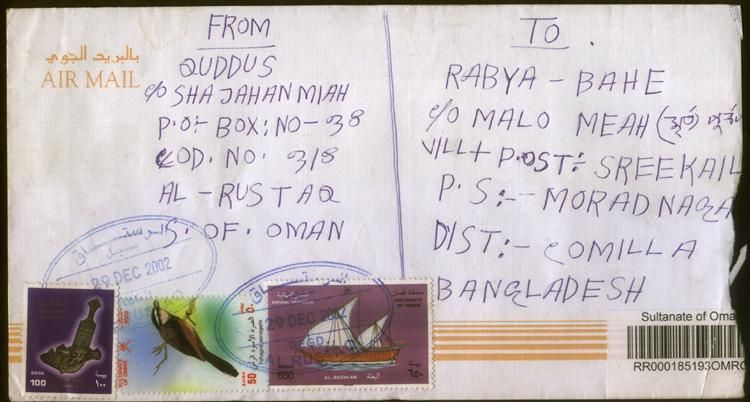 بالبريد الجوي
AIR MAIL
FROM
QUDDUS
C/O SHAJAHAN MIAH
P.O:- BOX: NO - 38
COD. NO. 318
AL - RUSTAQ
S. OF. OMAN
TO
RABYA - BAHE
C/O MALO MEAH
VILL + POST:- SREEKAIL
P. S:- - MORADNAGA
DIST:- COMILLA
BANGLADESH
الرستاق
مسجل
29 DEC 2002
الرستاق
29 DEC 2002
REGD.
AL RUSTAQ
BAISA
100
بيسة
١٠٠
SULTANATE OF OMAN
BAISA 50
سلطنة عمان
SULTANATE OF OMAN
BAISA
650
AL-BAGHLAH
البغلة
بيسة
٦٥٠
Sultanate of Oma
RR000185193OMRO